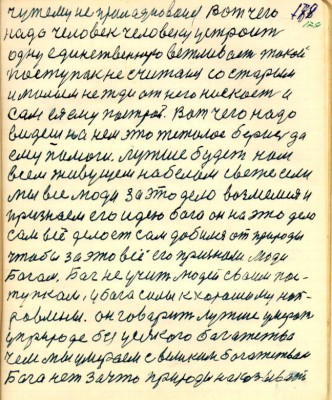 чужему не прикладовано Вот чего 188
надо человек человеку устроит 120
одну единственную вежливост такой
поступак не считаи со старым
и малым не жди от него ниского и
сам ему построй. Вот чего надо
видеш на нем это тежолое бериз да
ему помоги. лутше будет нам
всем живущем на белом свеже если
мы все люди за это дело возмемся и
признаем его идею бога он на это дело
сам всё делает сам добился от природы
чтобы за это всё его признали люди
Богам. Бог не учит людей своим пос-
тупкам, у бога силы к хорошему нап-
ровлены. он говарит лутше умерат
у природе без усякого богатства
чем мы умераем с великим богатствам
Бога нет за что природы наказыват